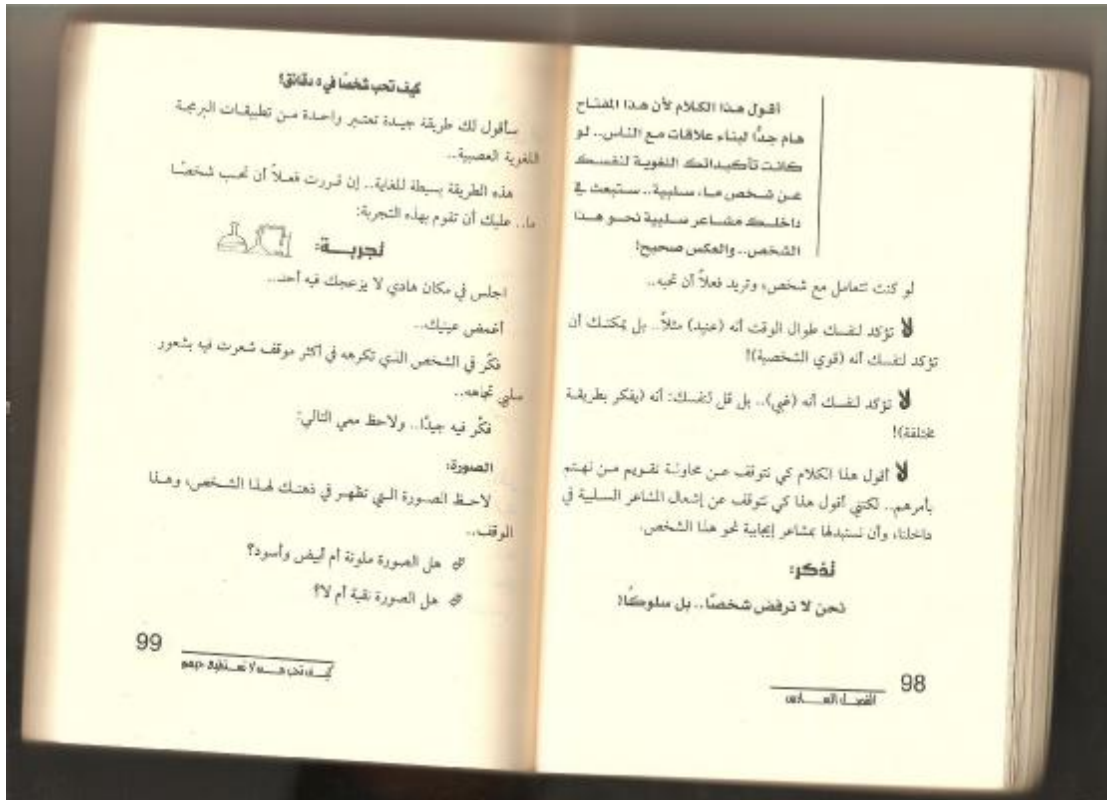 أقول هذا الكلام لأن هذا المفتاح
هام جدًّا لبناء علاقات مع الناس.. لو
كانت تأكيداتك اللغوية لنفسك
عن شخص ما، سلبية.. ستبعث في
داخلك مشاعر سلبية نحو هذا
الشخص.. والعكس صحيح!
لو كنت تتعامل مع شخص، وتريد فعلاً أن تحبه..
لا تؤكد لنفسك طوال الوقت أنه (عنيد) مثلاً.. بل يمكنك أن
تؤكد لنفسك أنه (قوي الشخصية)!
لا تؤكد لنفسك أنه (غبي).. بل قل لنفسك: أنه (يفكر بطريقة
مختلفة)!
لا أقول هذا الكلام كي نتوقف عن محاولة تقويم من نهتم
بأمرهم.. لكنني أقول هذا كي نتوقف عن إشعال المشاعر السلبية في
داخلنا، وأن نستبدلها بمشاعر إيجابية نحو هذا الشخص.
تذكر:
نحن لا نرفض شخصًا.. بل سلوكًا!
98
الفصل السادس
كيف تحب شخصًا في ٥ دقائق؟
سأقول لك طريقة جيدة تعتبر واحدة من تطبيقات البرمجة
اللغوية العصبية..
هذه الطريقة بسيطة للغاية.. إن قررت فعلاً أن تحب شخصًا
ما.. عليك أن تقوم بهذه التجربة:
تجربة:
اجلس في مكان هادي لا يزعجك فيه أحد..
أغمض عينيك..
فكّر في الشخص الذي تكرهه في أكثر موقف شعرت فيه بشعور
سلبي تجاهه..
فكّر فيه جيدًا.. ولاحظ معي التالي:
الصورة:
لاحظ الصورة التي تظهر في ذهنك لهذا الشخص، وهذا
الموقف..
هل الصورة ملونة أم أبيض وأسود؟
هل الصورة نقية أم لا؟
99
كيف تحب من لا تستطيع حبهم